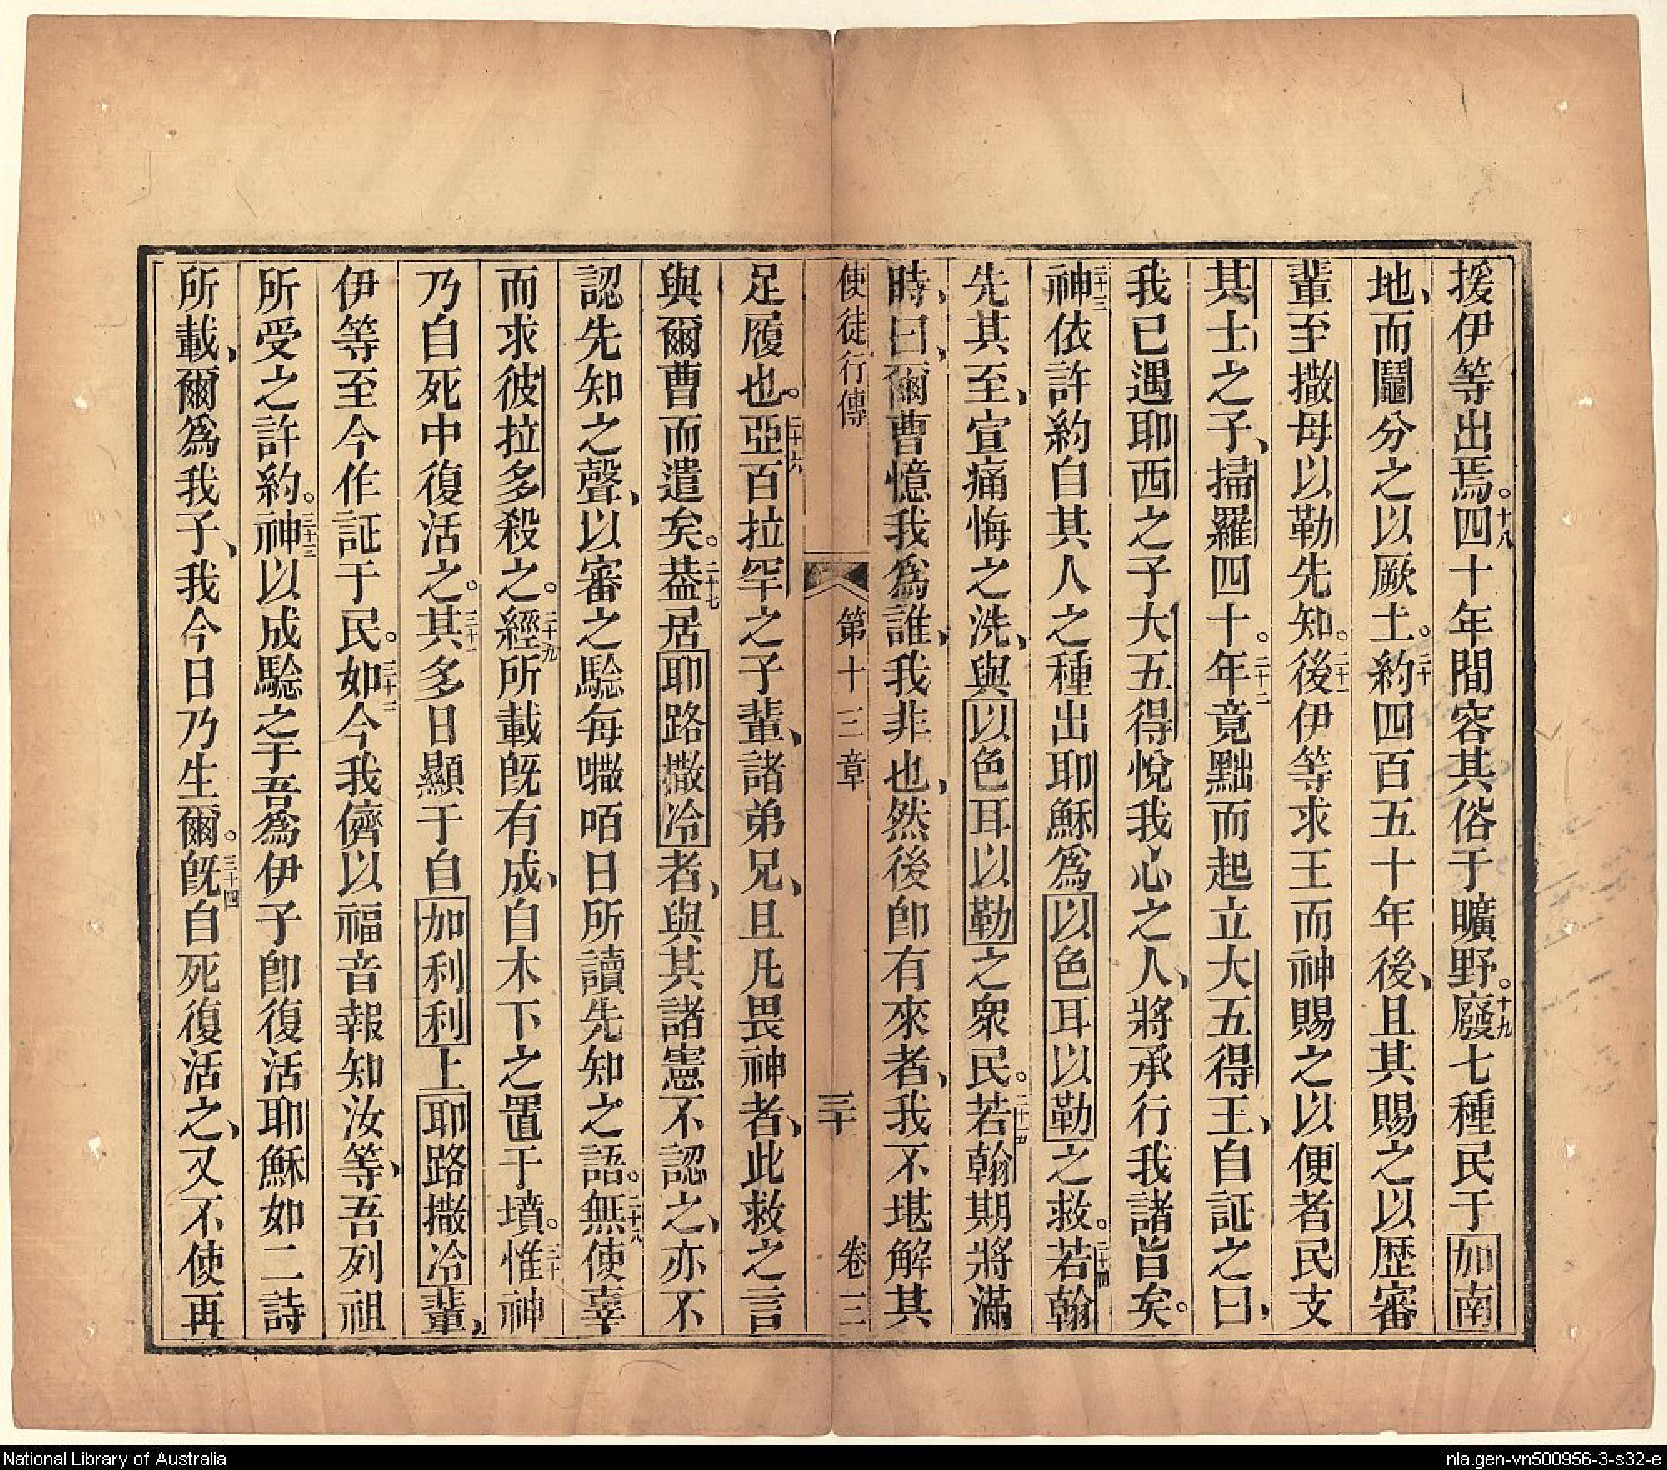 援伊等出焉。十八四十年間容其俗于曠野。十九廢七種民于加南
地、而鬮分之以厥土。二十約四百五十年後、且其賜之以歴審
輩至撒母以勒先知。二十一後伊等求王而神賜之以便者民支
其士之子、掃羅四十。二十二年竟黜而起立大五得王、自証之曰、
我已遇耶西之子大五得悅我心之人、將承行我諸旨矣。
二十三神依許約自其人之種出耶穌為以色耳以勒之救。二十四若翰
先其至、宣痛悔之洗、與以色耳以勒之衆民。二十五若翰期將滿
時、曰、爾曹憶我為誰、我非也、然後卽有來者、我不堪解其
使徒行傳 第十三章 三十 卷三
足履也。二十六亞百拉罕之子輩、諸弟兄、且凡畏神者、此救之言
與爾曹而遣矣。二十七葢居耶路撒冷者、與其諸憲不認之、亦不
認先知之聲、以審之驗每㗭咟日所讀先知之語。二十八無使辜
而求彼拉多殺之。二十九經所載旣有成、自木下之置于墳。三十惟神
乃自死中復活之。三十一其多日顯于自加利利上耶路撒冷輩、
伊等至今作証于民。三十二如今我儕以福音報知汝等、吾列祖
所受之許約。三十三神以成騐之于吾為伊子卽復活耶穌如二詩
所載、爾為我子、我今日乃生爾。三十四旣自死復活之、又不使再
National Library of Australia
nla.gen-vn500956-3-s32-e